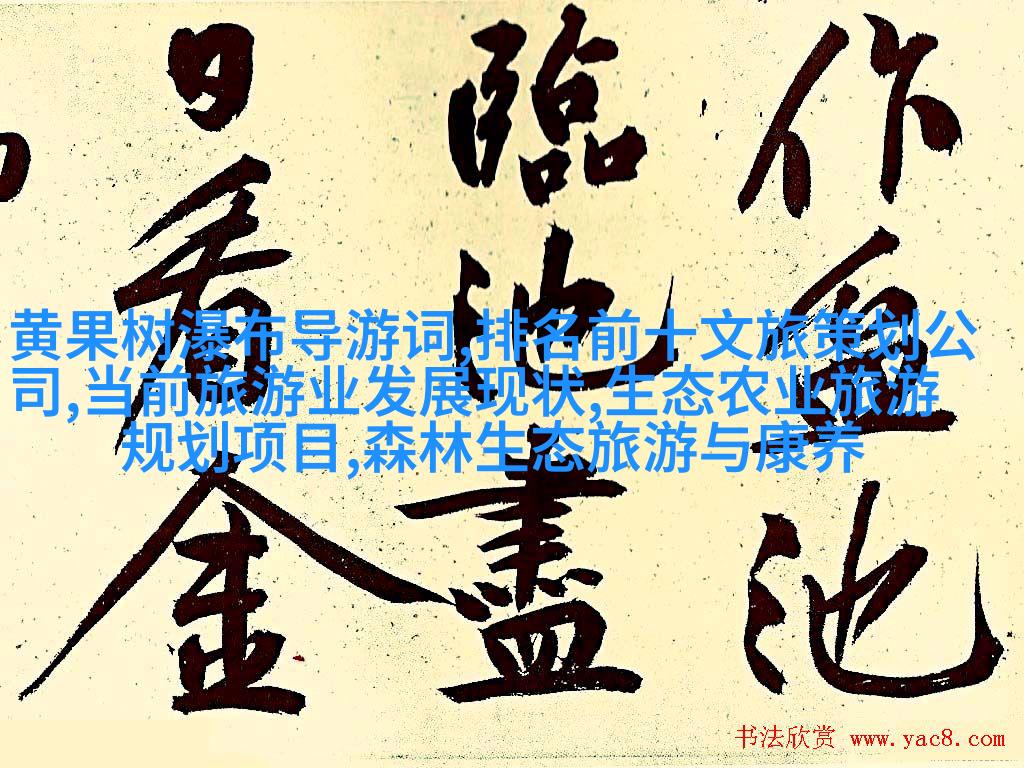 黄果树瀑布导游词,排名前十文旅策划公
司,当前旅游业发展现状,生态农业旅游
规划项目,森林生态旅游与康养
作池
臨池盡
日金
书法欣赏 www.yac8.com